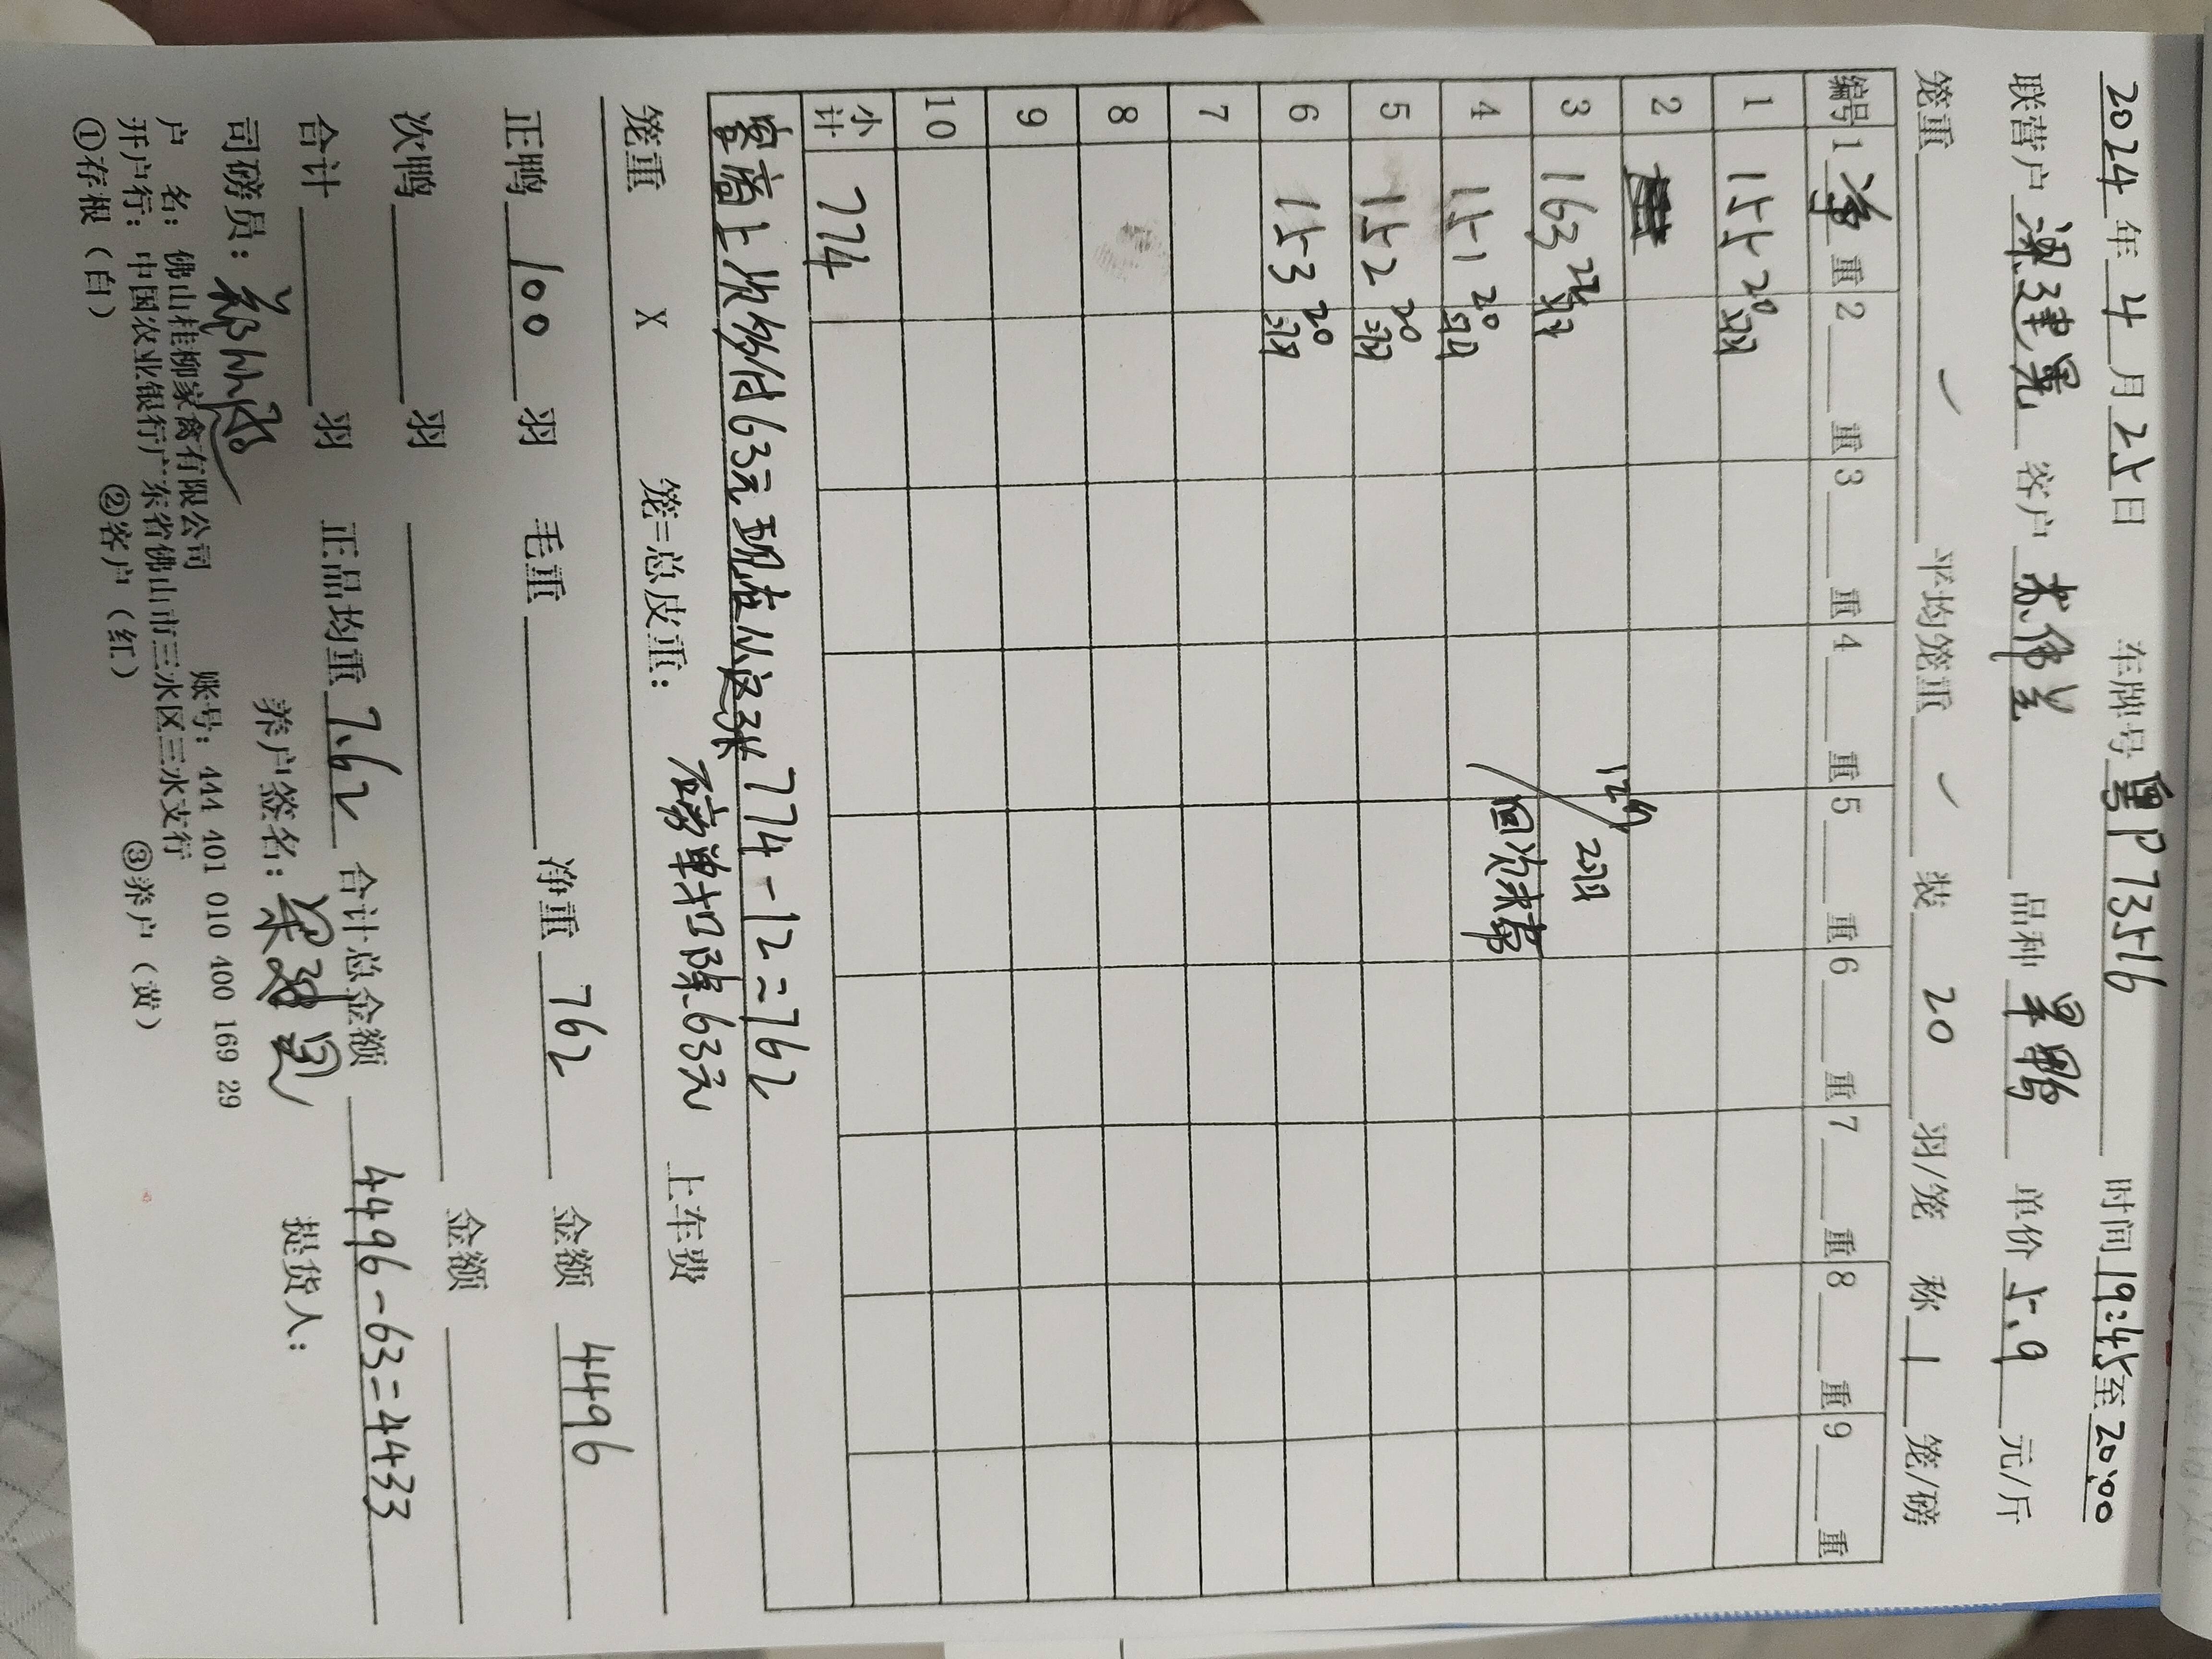 2024年4月25日 车牌号粤P73516 时间19:45至20:00
联营户 梁建星 客户 苏伟兰 品种 旱鸭 单价 5.9 元/斤
笼重 平均笼重 装 20 羽/笼 称 1 笼/磅
编号 1 净 重 2 重 3 重 4 重 5 重 6 重 7 重 8 重 9 重
1 155 20羽
2
3 163 羽 12斤 2羽
4 151 20羽 回次未带
5 152 20羽
6 153 20羽
7
8
9
10
小计 774
客商上次多付63元现在从这张 774-12=762
磅单扣除63元
笼重 X 笼=总皮重: 上车费
正鸭 100 羽 毛重 净重 762 金额 4496
次鸭 羽 金额
合计 羽 正品均重 7.62 合计总金额 4496-63=4433
司磅员: 养户签名: 提货人:
户 名: 佛山桂柳家禽有限公司 账号: 444 401 010 400 169 29
开户行: 中国农业银行广东省佛山市三水区三水支行
①存根（白） ②客户（红） ③养户（黄）